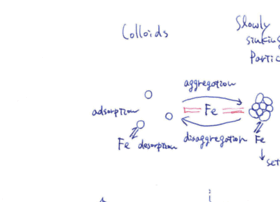 Colloids
Slowly
sinking
Partic
aggregation
adsorption
Fe
disaggregation
Fe desorption
Fe
set